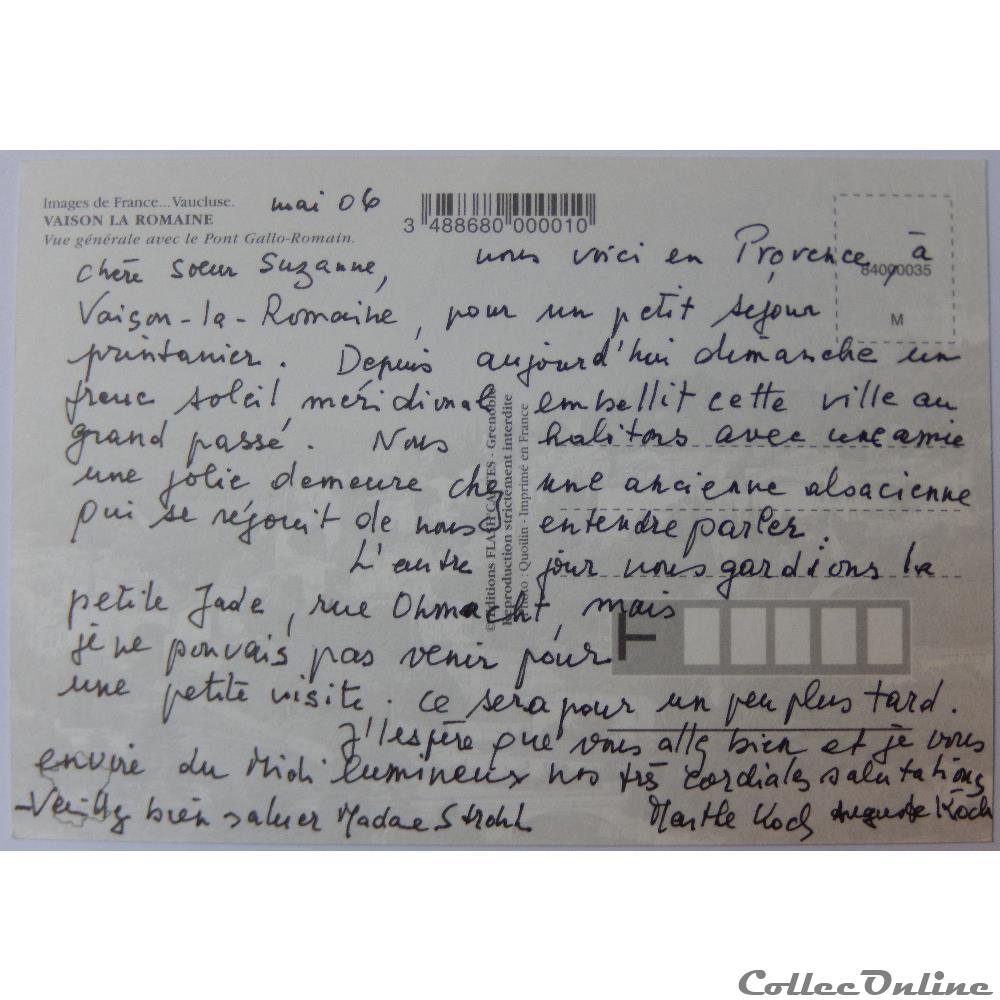 Images de France... Vaucluse.
VAISON LA ROMAINE
Vue générale avec le Pont Gallo-Romain.
mai 06
3 488680 000010
84000035
M
Chère Soeur Suzanne, nous voici en Provence, à
Vaison-la-Romaine, pour un petit séjour
printanier. Depuis aujourd'hui dimanche un
franc soleil méridional embellit cette ville au
grand passé. Nous habitons avec une amie
une jolie demeure chez une ancienne alsacienne
qui se réjouit de nous entendre parler.
L'autre jour nous gardions la
petite Jade, rue Ohmacht, mais
je ne pouvais pas venir pour
une petite visite. Ce sera pour un peu plus tard.
J'espère que vous allez bien et je vous
envoie du Midi lumineux nos très cordiales salutations
Veuillez bien saluer Madame Strohl
Marthe Koch Auguste Koch
© Editions FLASH CARTES - Grenoble
Reproduction strictement interdite
Photo : Quoilin - Imprimé en France
CollecOnline